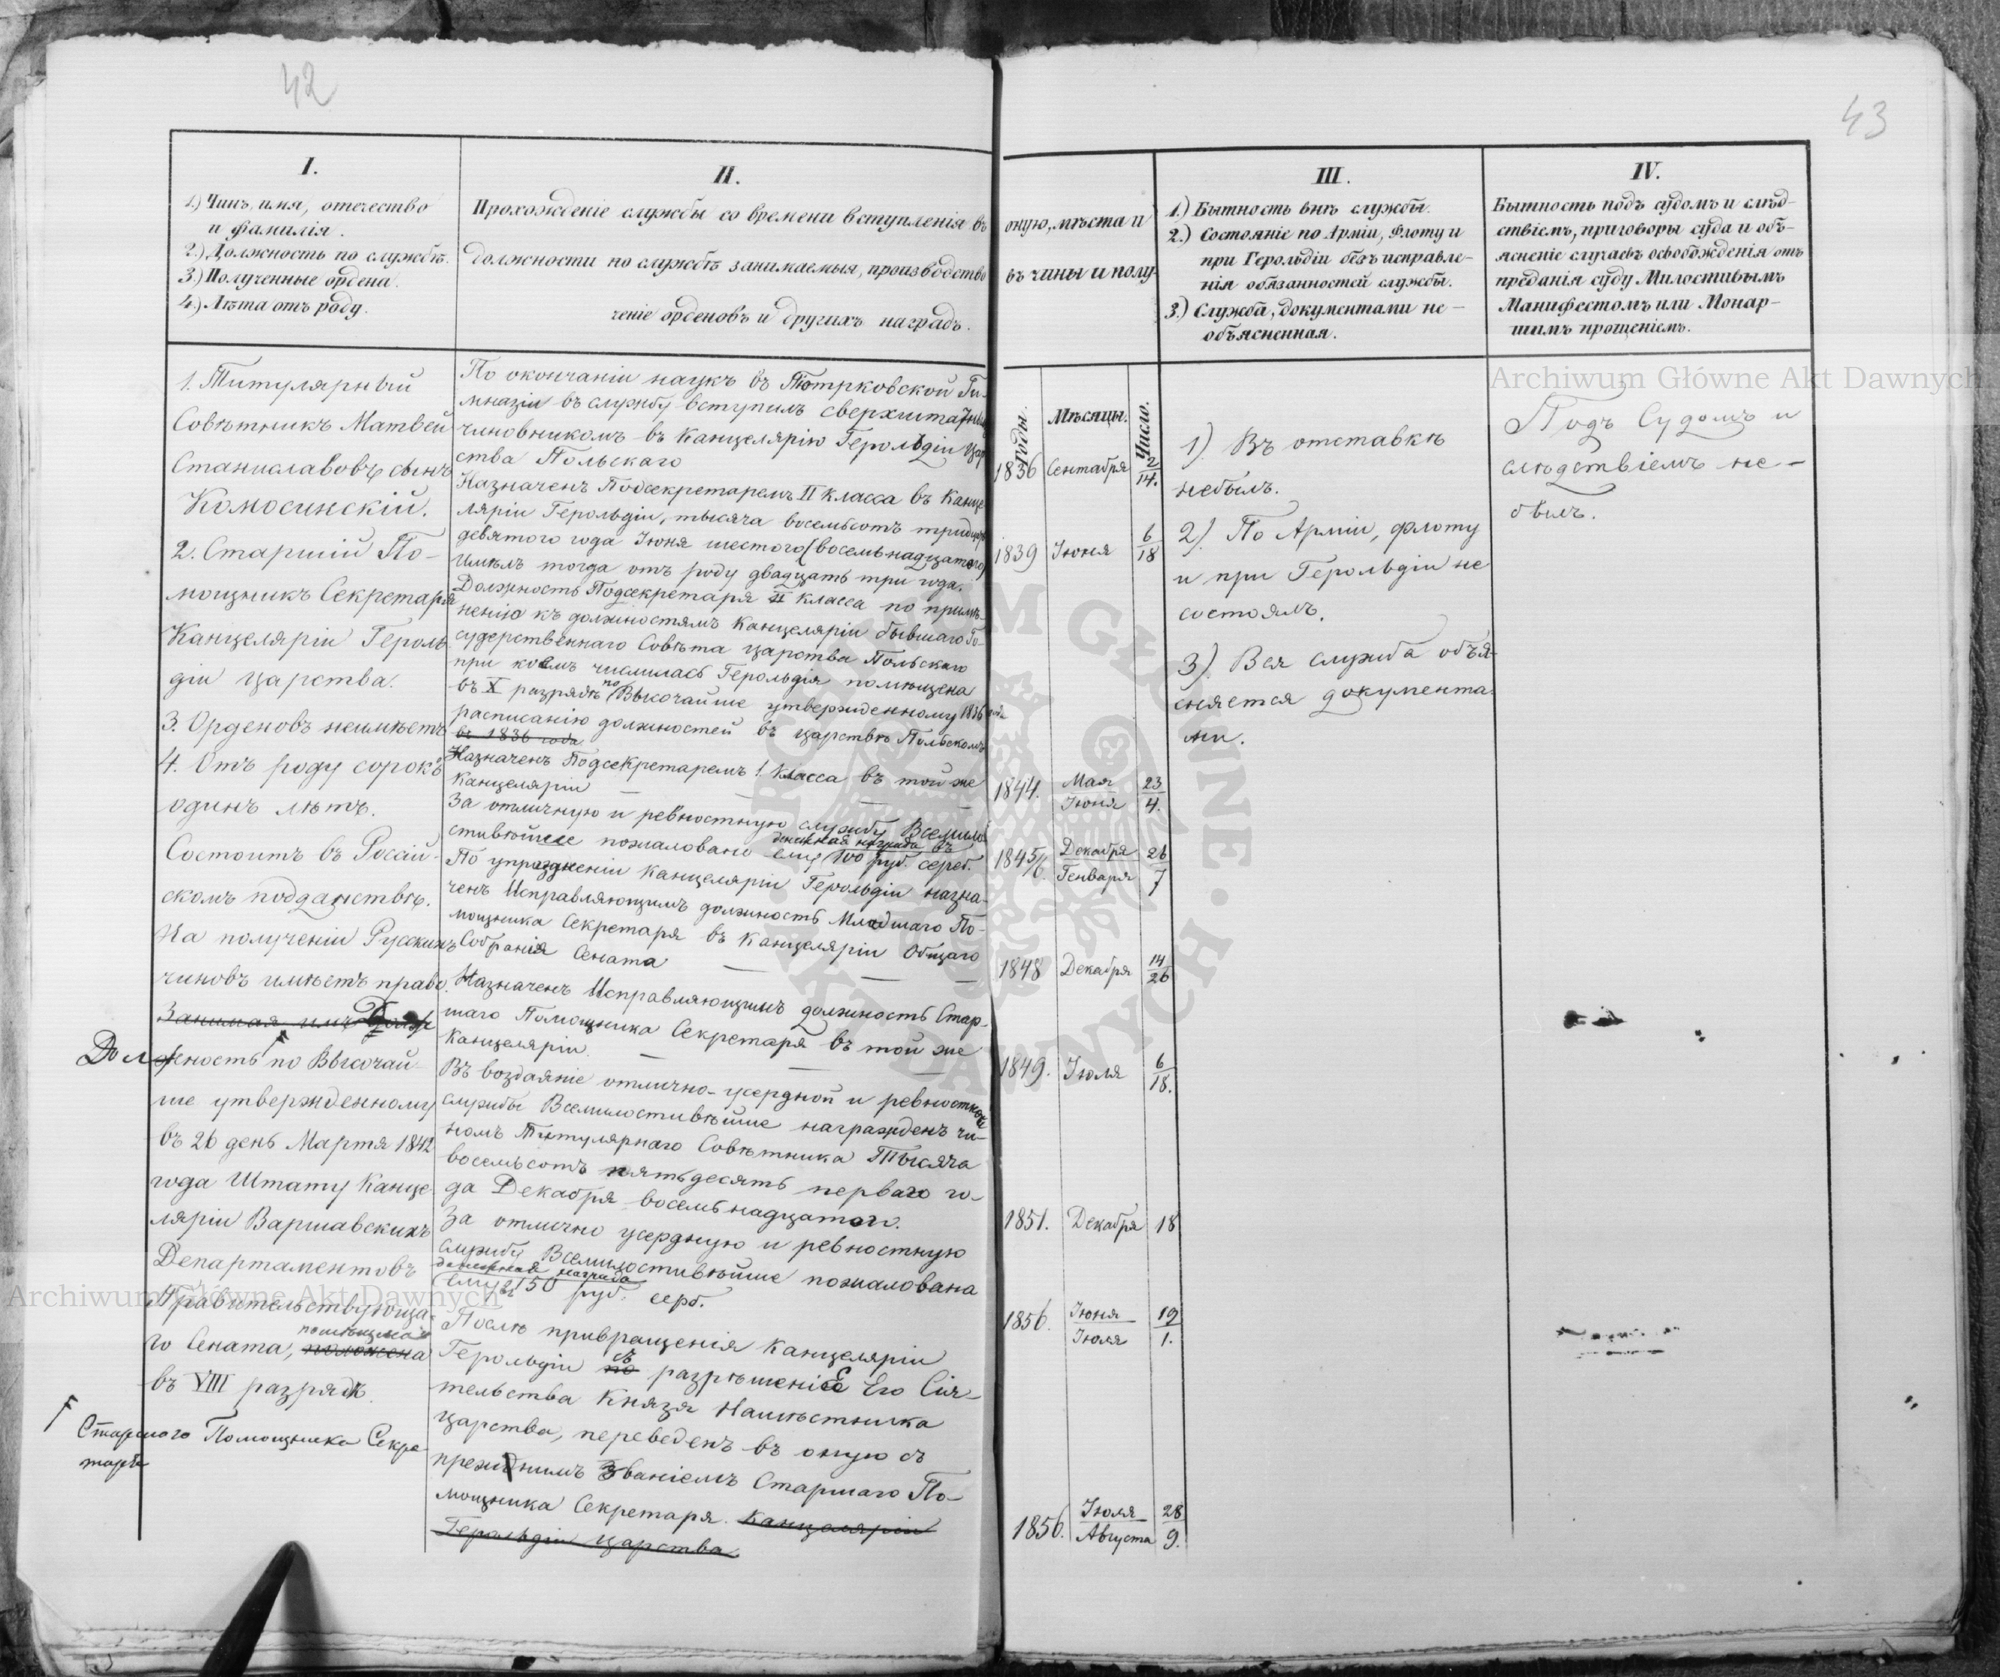 42
I.
1.) Чинъ, имя, отечество
и фамилія.
2.) Должность по службѣ.
3.) Полученные ордена.
4.) Лѣта отъ роду.
II.
Прохожденіе службы со времени вступленія въ
должности по службѣ занимаемыя, производство
ченіе орденовъ и другихъ наградъ.
1. Титулярный
Совѣтникъ Матвей
Станиславовъ сынъ
Комосинскій.
2. Старшій По-
мощникъ Секретаря
Канцеляріи Героль-
діи Царства.
3. Орденовъ неимѣетъ
4. Отъ роду сорокъ
одинъ лѣтъ.
Состоитъ въ Россій-
скомъ подданствѣ.
На полученіи Русскихъ
чиновъ имѣетъ право.
Занимая имъ Долж
Должность по Высочай-
ше утвержденному
въ 26 день Марта 1842
года Штату Канце-
ляріи Варшавскихъ
Департаментовъ
Правительствующа-
помѣщена
го Сената, положена
въ VIII разрядѣ.
Старшого Помощника Секре-
таря
По окончаніи наукъ въ Піотрковской Ги-
мназіи въ службу вступилъ сверхштатнымъ
чиновникомъ въ Канцелярію Герольдіи Цар
ства Польскаго
Назначенъ Подсекретаремъ II класса въ Канце
ляріи Герольдіи, тысяча восемьсотъ тридцать
девятого года Іюня шестого (восемьнадцатаго)
имѣлъ тогда отъ роду двадцать три года.
Должность Подсекретаря II класса по примѣ-
ненію къ должностямъ Канцеляріи бывшаго Го-
сударственнаго Совѣта Царства Польскаго
при коемъ числилась Герольдія помѣщена
въ X разрядѣ по Высочайше утвержденному 1836 года
расписанію должностей въ Царствѣ Польскомъ
въ 1836 года
Назначенъ Подсекретаремъ 1. Класса въ той же
Канцеляріи — — —
За отличную и ревностную службу Всемило
стивѣйше пожаловано денежная награда въ
ему 100 руб. сереб.
По упраздненіи Канцеляріи Герольдіи назна-
ченъ Исправляющимъ должность Младшаго По-
мощника Секретаря въ Канцеляріи Общаго
Собранія Сената — — —
Назначенъ Исправляющимъ должность Стар-
шаго Помощника Секретаря въ той же
Канцеляріи. — — —
Въ воздаяніе отлично-усердной и ревностной
службы Всемилостивѣйше награжденъ чи-
номъ Титулярнаго Совѣтника Тысяча
восемьсотъ пятьдесятъ перваго го-
да Декабря восемьнадцатаго.
За отлично усердную и ревностную
службу Всемилостивѣйше пожалована
денежная награда
ему въ 150 руб. серб.
Послѣ привращенія Канцеляріи
Герольдіи по съ разрѣшеніе Его Сія-
тельства Князя Намѣстника
Царства, переведенъ въ оную съ
прежднимъ званіемъ Старшаго По-
мощника Секретаря. Канцеляріи
Герольдіи Царства.
43
оную, мѣста и
въ чины и полу-
III.
1.) Бытность внѣ службы.
2.) Состояніе по Арміи, Флоту и
при Герольдіи безъ исправле-
нія обязанностей службы.
3.) Служба, документами не-
объясненная.
IV.
Бытность подъ судомъ и слѣд-
ствіемъ, приговоры суда и объ-
ясненіе случаевъ освобожденія отъ
преданія суду Милостивымъ
Манифестомъ или Монар-
шимъ прощеніемъ.
Годы. Мѣсяцы. Число.
1836 Сентября 2/14.
1839 Іюня 6/18
1844. Мая/Іюня 23/4.
1845/6. Декабря/Генваря 26/7
1848 Декабря 14/26
1849. Іюля 6/18.
1851. Декабря 18
1856. Іюня/Іюля 19/1.
1856. Іюля/Августа 28/9.
1) Въ отставкѣ
небылъ.
2). По Арміи, флоту
и при Герольдіи не
состоялъ.
3). Вся служба объя-
сняется документа-
ми.
Подъ Судомъ и
слѣдствіемъ не-
былъ.
Archiwum Główne Akt Dawnych
Archiwum Główne Akt Dawnych
ARCHIWUM GŁÓWNE AKT DAWNYCH